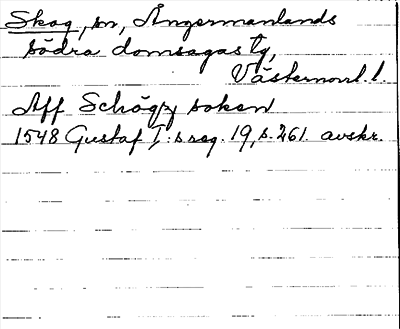 Skog, sn, Ångermanlands
södra domsagas tg,
Västernorrl. l.
Aff Schögz soken
1548 Gustaf I:s reg. 19, s. 261. avskr.